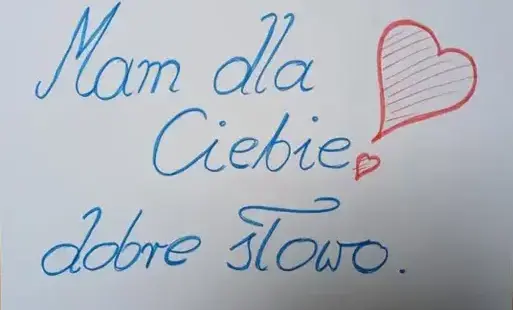 Mam dla
Ciebie
dobre słowo.